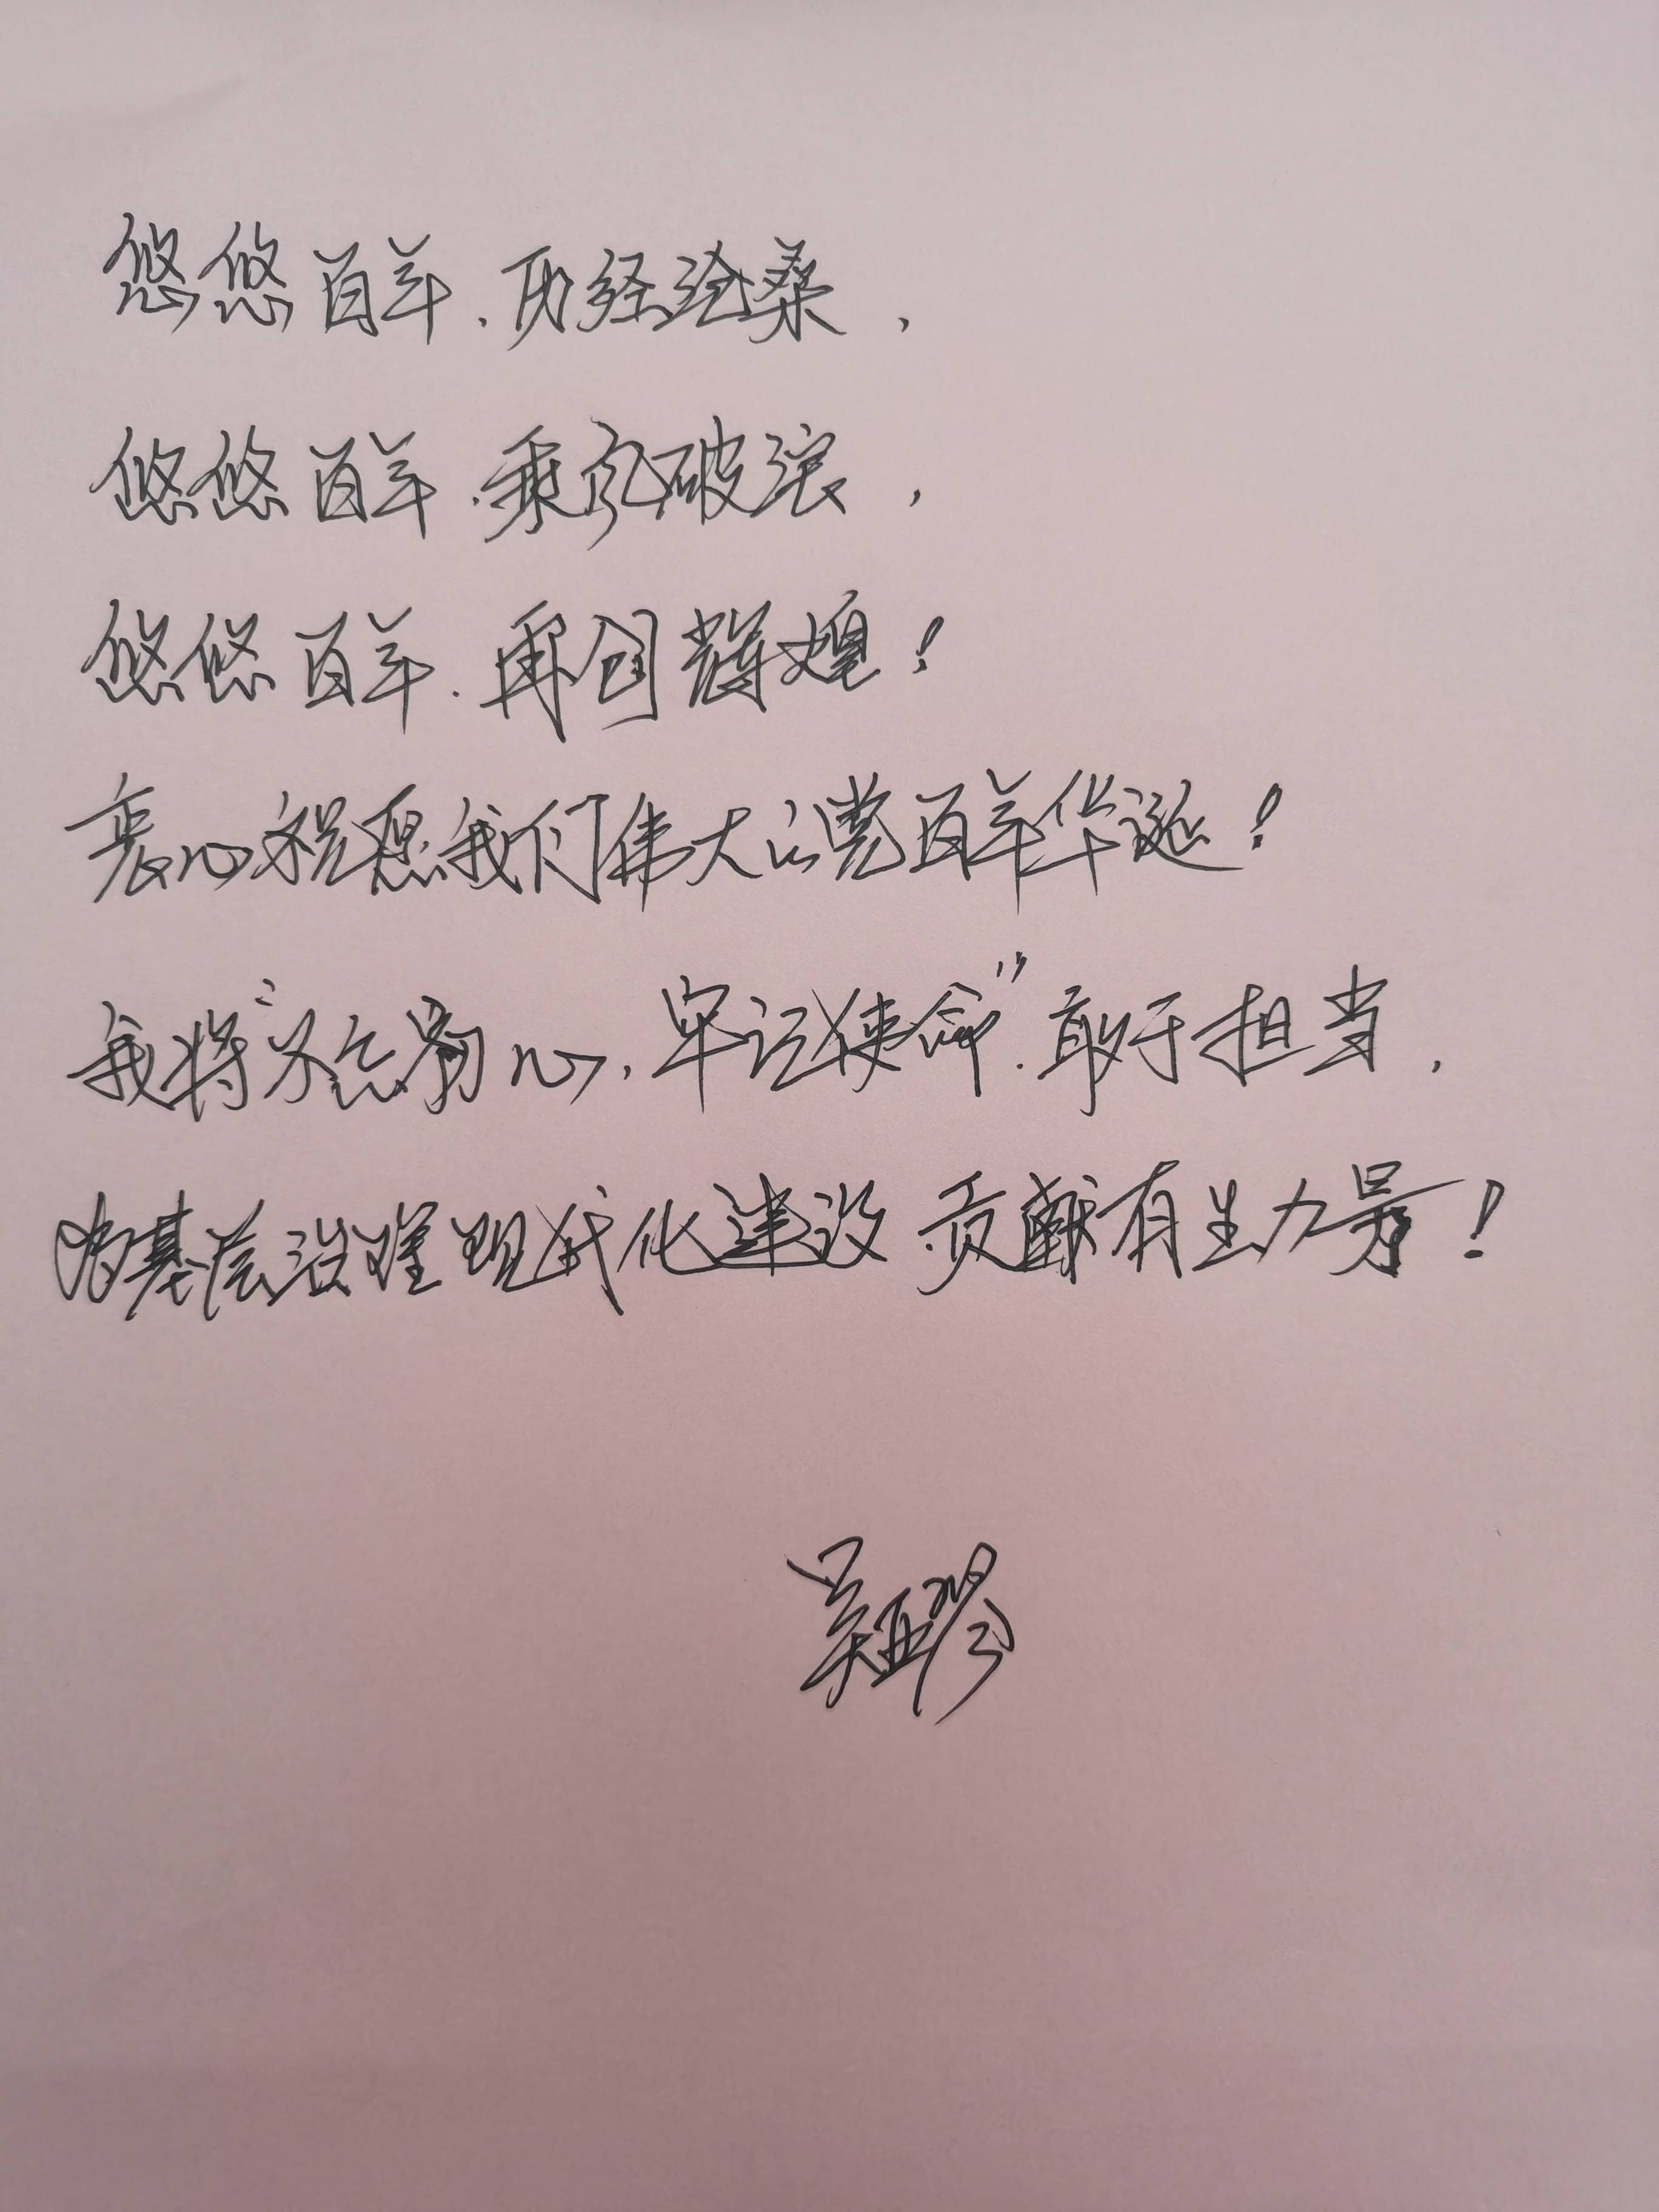 悠悠百年，历经沧桑，
悠悠百年，乘风破浪，
悠悠百年，再创辉煌！
衷心祝愿我们伟大的党百年华诞！
我将“不忘初心，牢记使命”，敢于担当，
为基层治理现代化建设贡献有生力量！
吴亚